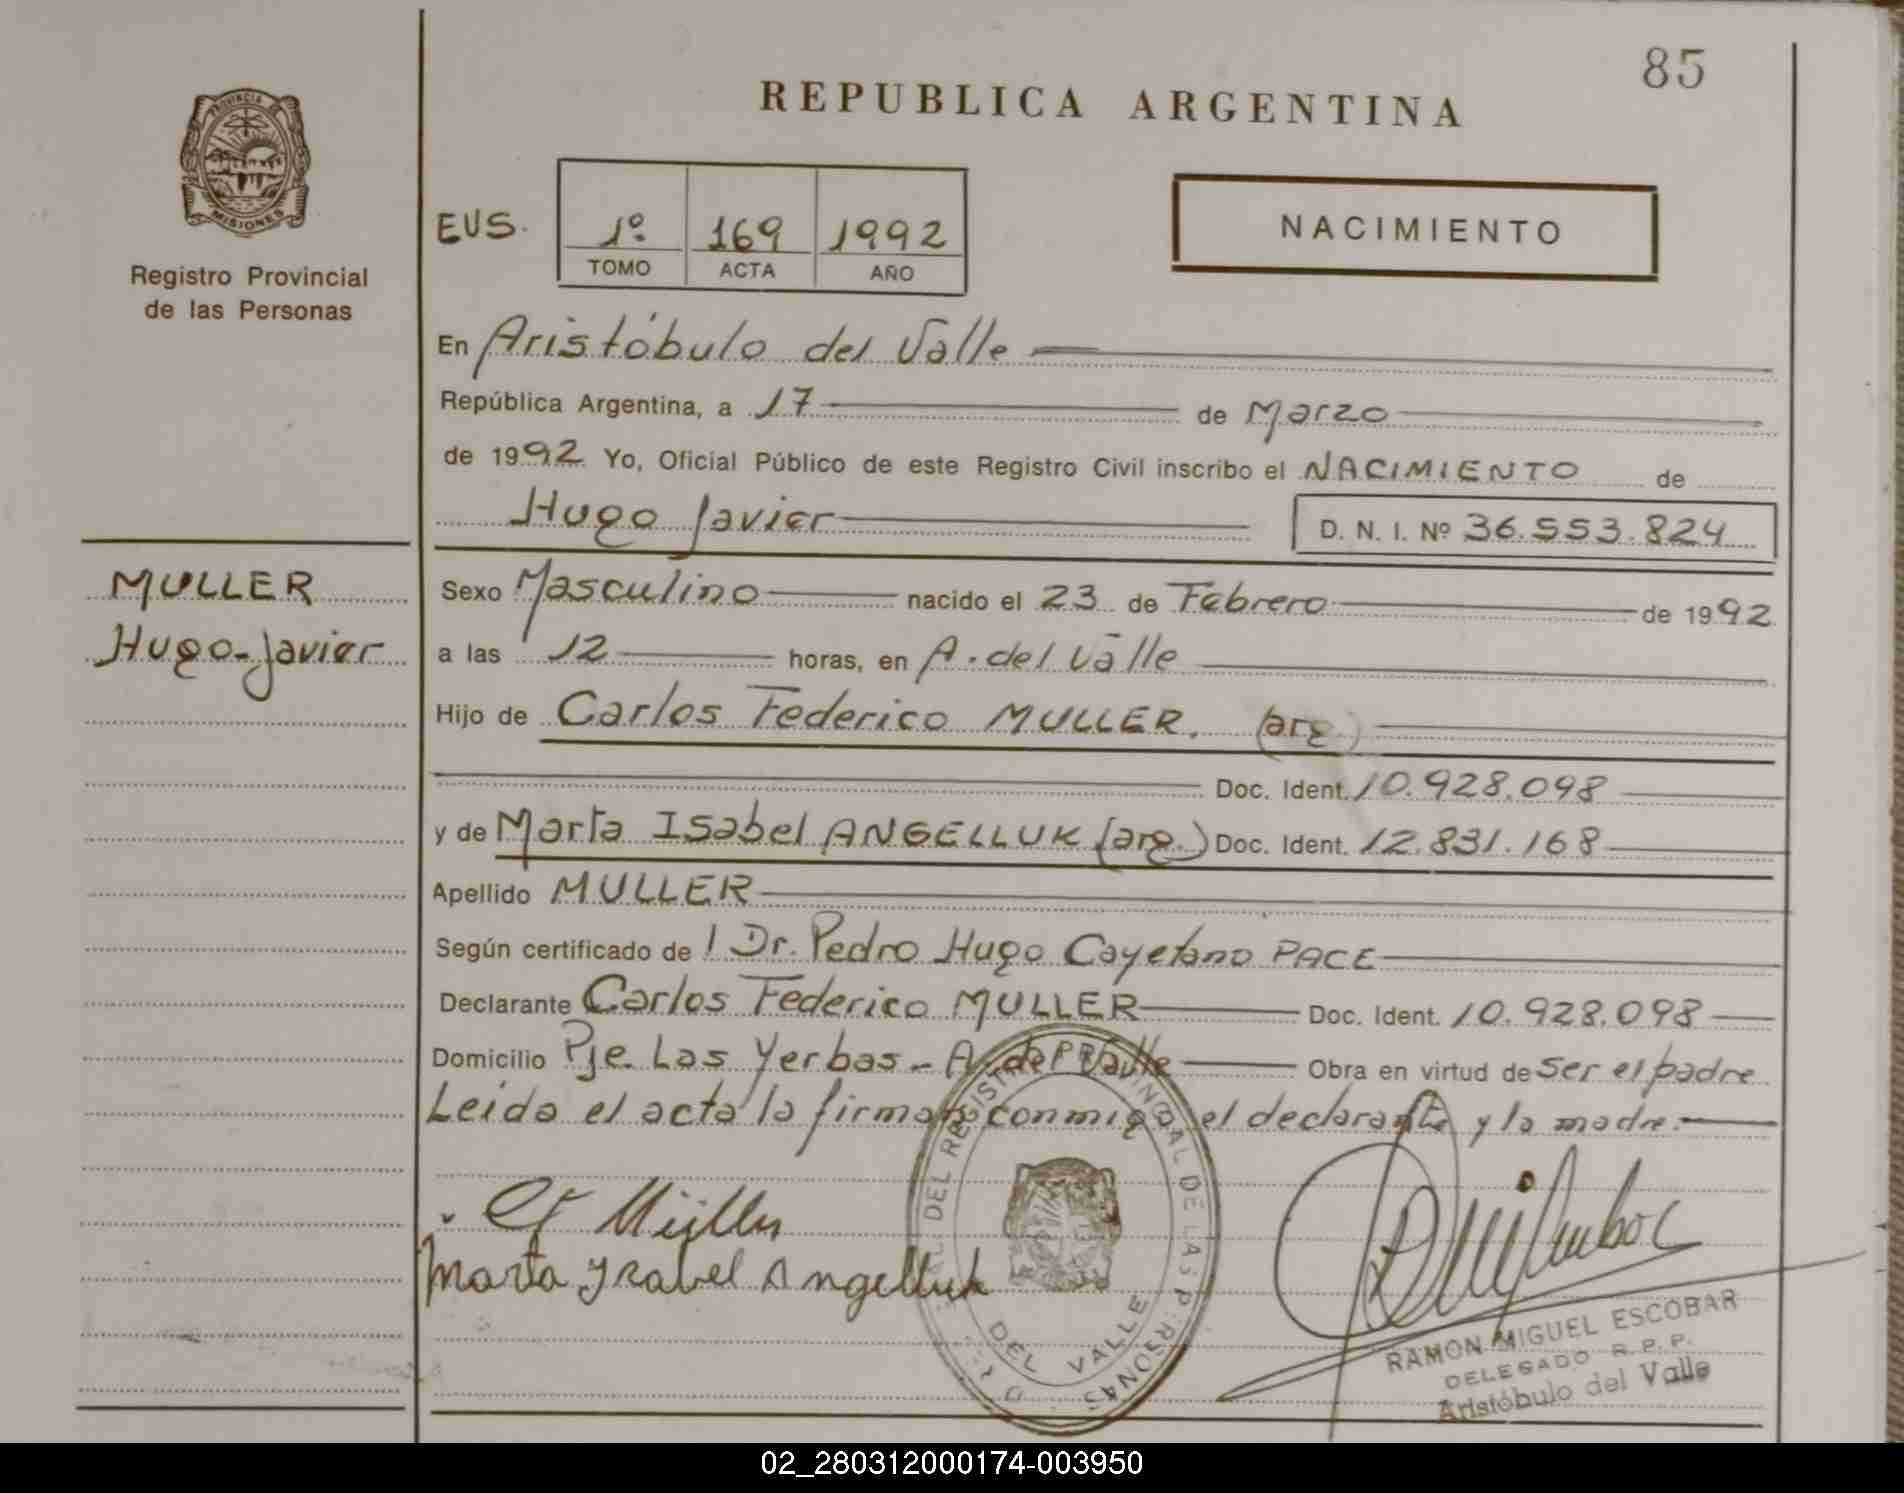 85
REPUBLICA ARGENTINA
PROVINCIA DE
MISIONES
Registro Provincial
de las Personas
EUS.
1º 169 1992
TOMO ACTA AÑO
NACIMIENTO
En Aristóbulo del Valle
República Argentina, a 17 de Marzo
de 1992 Yo, Oficial Público de este Registro Civil inscribo el NACIMIENTO de
Hugo Javier D. N. I. Nº 36.553.824
MULLER
Hugo-Javier
Sexo Masculino nacido el 23 de Febrero de 1992
a las 12 horas, en A. del Valle
Hijo de Carlos Federico MULLER. (arg.)
Doc. Ident. 10.928.098
y de Marta Isabel ANGELLUK (arg.) Doc. Ident. 12.831.168
Apellido MULLER
Según certificado de l Dr. Pedro Hugo Cayetano PACE
Declarante Carlos Federico MULLER Doc. Ident. 10.928.098
Domicilio Pje. Las Yerbas - A. del Valle Obra en virtud de ser el padre
Leida el acta la firman conmigo el declarante y la madre.
Müller
Marta Ysabel Angelluk
DEL REGISTRO PROVINCIAL DE LAS PERSONAS
DEL VALLE
RAMON MIGUEL ESCOBAR
DELEGADO R.P.P.
Aristóbulo del Valle
02_280312000174-003950